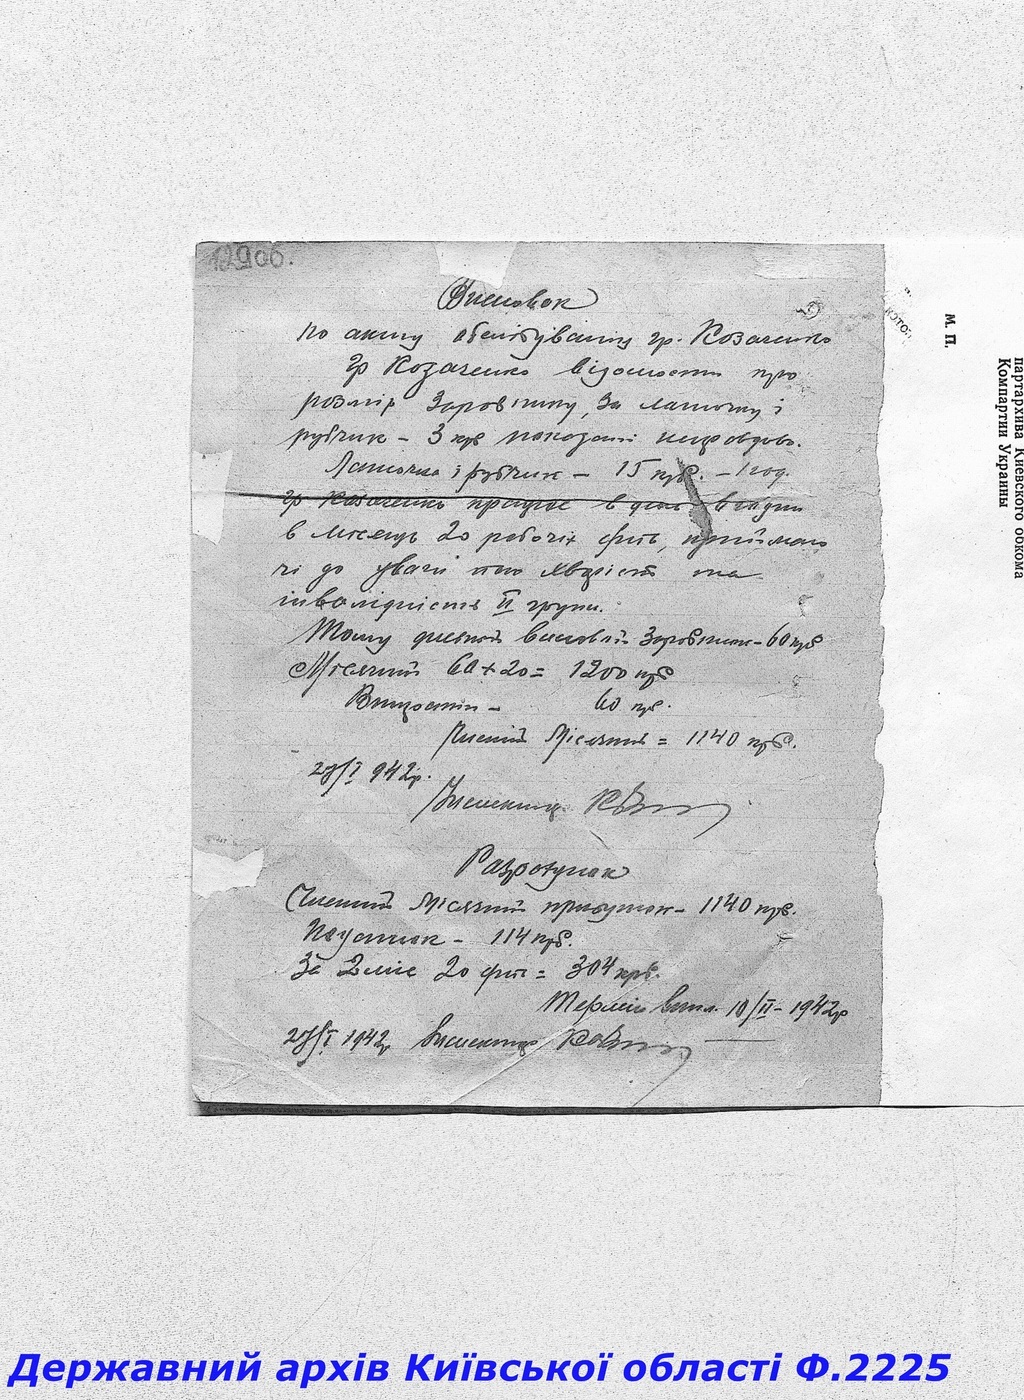 129об.
Висновок
по акту обслідування гр. Козаченко
Гр Козаченко відомости про
розмір заробітку, за латочку і
рубчик – 3 крб показані неправдово.
Латочка і рубчик – 15 крб. – 1 год.
гр Козаченко працює в день годин
в місяць 20 робочіх днів, приймаю
чі до уваги його
інвалідність II групи.
Тому денний валовий заробіток – 60 крб
Місячний 60 х 20 = 1200 крб
Видатки – 60 крб.
Чистий Місячний = 1140 крб.
27/I 942р.
Інспектор
Разрахунак
Чистий Місячний прибуток – 1140 крб.
Податок – 114 крб.
За 2 міс 20 днів = 304 крб.
Термін випл. 10/II – 1942р
27/I 1942р Інспектор
М. П.
партархива Киевского обкома
Компартии Украины
Державний архів Київської області Ф.2225